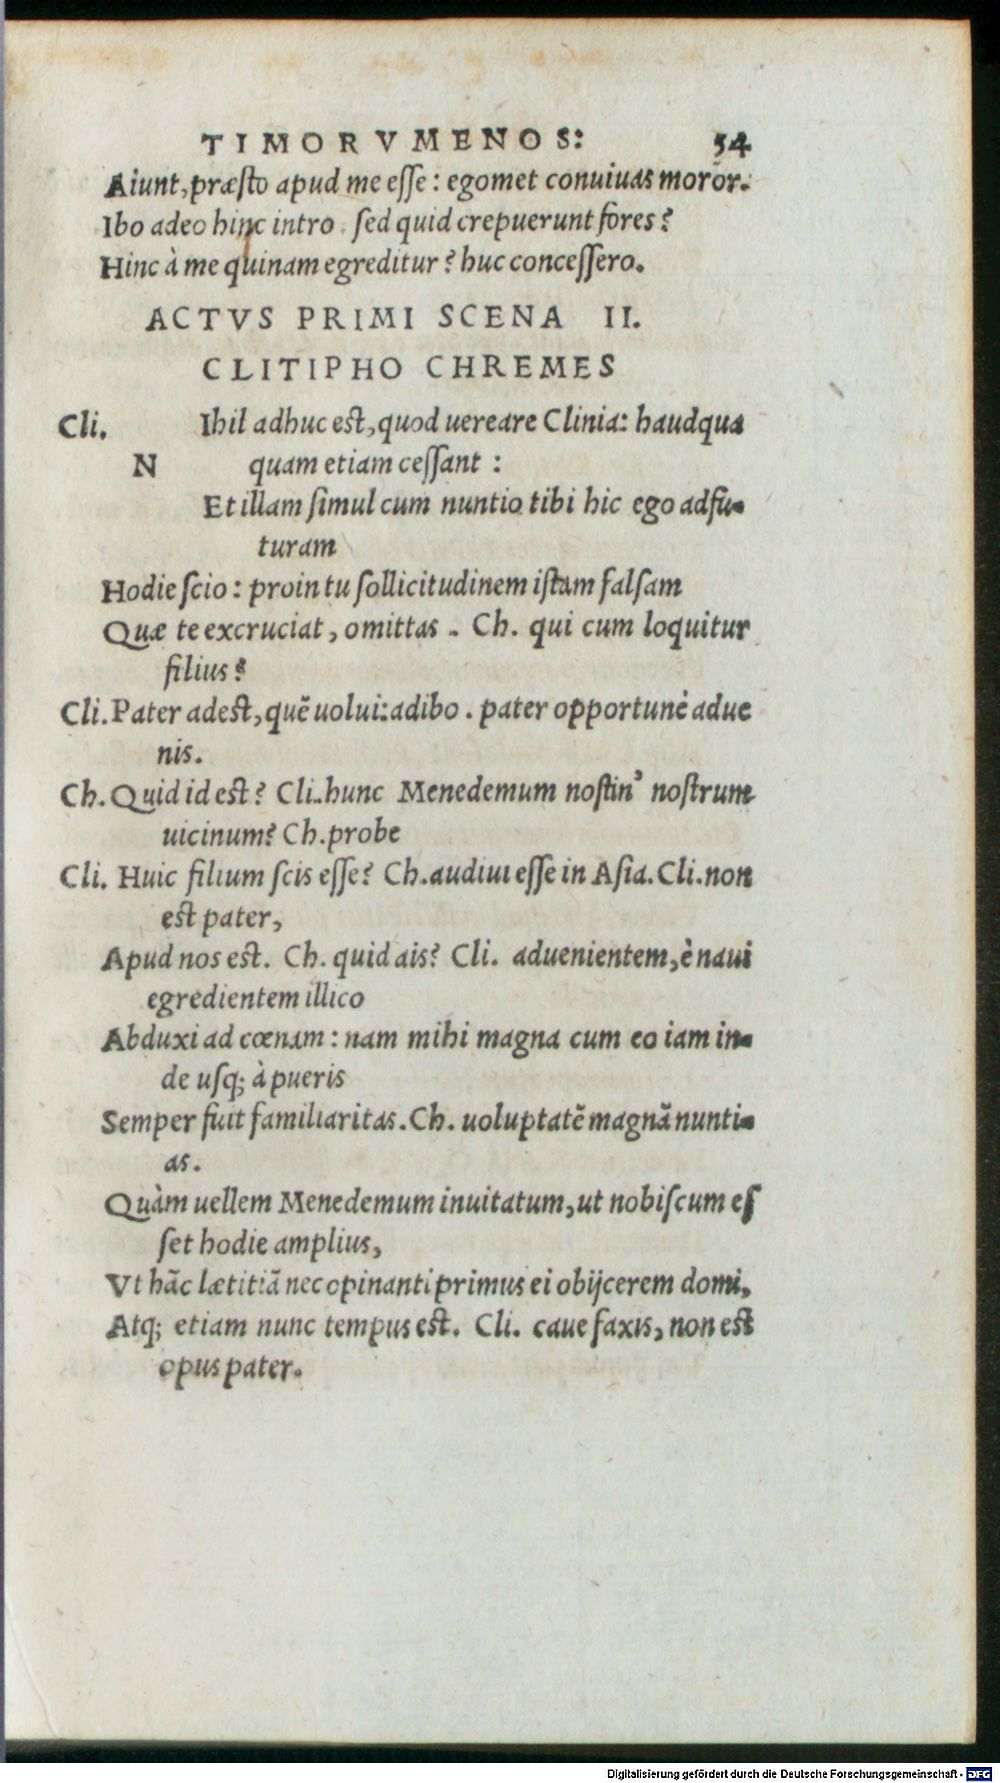 TIMORVMENOS: 54
Aiunt, præsto apud me esse: egomet conuiuas moror.
Ibo adeo hinc intro. sed quid crepuerunt fores?
Hinc à me quinam egreditur? huc concessero.
ACTVS PRIMI SCENA II.
CLITIPHO CHREMES
Cli. Ihil adhuc est, quod uereare Clinia: haudqua
N quam etiam cessant:
Et illam simul cum nuntio tibi hic ego adfu-
turam
Hodie scio: proin tu sollicitudinem istam falsam
Quæ te excruciat, omittas. Ch. qui cum loquitur
filius?
Cli. Pater adest, quē uolui: adibo. pater opportunè adue
nis.
Ch. Quid id est? Cli. hunc Menedemum nostin' nostrum
uicinum? Ch. probe
Cli. Huic filium scis esse? Ch. audiui esse in Asia. Cli. non
est pater,
Apud nos est. Ch. quid ais? Cli. aduenientem, è naui
egredientem illico
Abduxi ad cœnam: nam mihi magna cum eo iam in-
de usq; à pueris
Semper fuit familiaritas. Ch. uoluptatē magnā nunti-
as.
Quàm uellem Menedemum inuitatum, ut nobiscum es
set hodie amplius,
Vt hāc lætitiā nec opinanti primus ei obijcerem domi,
Atq; etiam nunc tempus est. Cli. caue faxis, non est
opus pater.
Digitalisierung gefördert durch die Deutsche Forschungsgemeinschaft - DFG